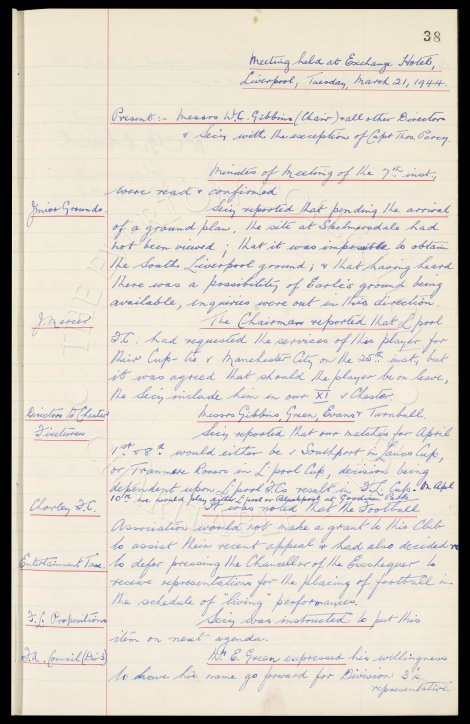 38
Meeting held at Exchange Hotel,
Liverpool, Tuesday, March 21, 1944.
Present:- Messrs W.C. Gibbins (Chair) & all other Directors
& Secy with the exception of Capt Thos. Percy.
Minutes of Meeting of the 7th inst,
were read & confirmed
Junior Grounds. Secy reported that pending the arrival
of a ground plan, the site at Skelmersdale had
not been viewed; that it was impossible to obtain
the South Liverpool ground; & that having heard
there was a possibility of Earle's ground being
available, enquiries were out in this direction.
J. Mercer The Chairman reported that L'pool
F.C. had requested the services of this player for
their Cup-tie v Manchester City on the 25th inst, but
it was agreed that should the player be on leave,
the Secy include him in our XI v Chester.
Directors to Chester Messrs Gibbins, Green, Evans & Turnbull.
Fixtures Secy reported that our matches for April
1st & 8th would either be v Southport in Lancs Cup,
or Tranmere Rovers in L'pool Cup, decision being
dependent upon L'pool F.Cs result in F.L. Cup. On Apl
10th we would play either L'pool or Blackpool at Goodison Park.
Chorley F.C. It was noted that the Football
Association would not make a grant to this Club
to assist their recent appeal & had also decided
Entertainment Tax to defer pressing the Chancellor of the Exchequer to
receive representations for the placing of football in
the schedule of "living" performances.
F.L. Propositions Secy was instructed to put this
item on next agenda.
F.A. Council (Div 3) Mr E. Green expressed his willingness
to have his name go forward for Division 3's
representative